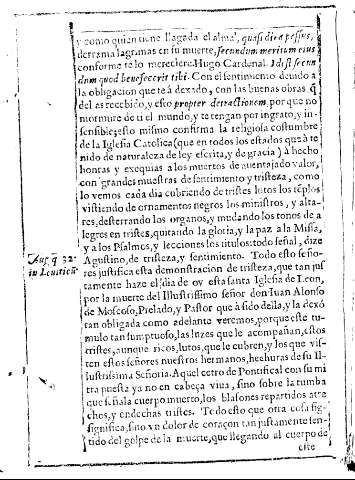 y como quien tiene llagada el alma, quasi dira passus,
derrama lagrimas en su muerte, secundum meritum eius
conforme te lo mereciere. Hugo Cardenal. Id est secun
dum quod benefecerit tibi. Con el sentimiento deuido a
la obligacion que te à dexado, con las buenas obras q̃
del as recebido, y esto propter detractionem, por que no
mormure de ti el mundo, y te tengan por ingrato, y in-
sensible; esto mismo confirma la religiosa costumbre
de la Iglesia Catolica (que en todos los estados que à te
nido de naturaleza de ley escrita, y de gracia) à hecho
honras y exequias a los muertos de auentajado valor,
con grandes muestras de sentimiento y tristeza, como
lo vemos cada dia cubriendo de tristes lutos los tẽplos
vistiendo de ornamentos negros los ministros, y alta-
res, desterrando los organos, y mudando los tonos de a
legres en tristes, quitando la gloria, y la paz a la Missa,
y a los Psalmos, y lecciones los titulos: todo señal, dize
Aug. q̃ 32
in Leuitic
Agustino, de tristeza, y sentimiento. Todo esto seño-
res justifica esta demonstracion de tristeza, que tan jus
tamente haze el dia de oy esta santa Iglesia de Leon,
por la muerte del Illustrissimo señor don Iuan Alonso
de Moscoso, Prelado, y Pastor que à sido della, y la dexò
tan obligada como adelante veremos, porque este tu-
mulo tan sumptuoso, las luzes que le acompañan, estos
tristes, aunque ricos, lutos, que le cubren, y los que vis-
ten estos señores nuestros hermanos, hechuras de su Il-
lustrissima Señoria. Aquel cetro de Pontifical con su mi
tra puesta ya no en cabeça viua, sino sobre la tumba
que señala cuerpo muerto, los blasones repartidos atre
chos, y endechas tristes. Todo esto que otra cosa sig-
significa, sino vn dolor de coraçon tan justamente sen-
tido del golpe de la muerte, que llegando al cuerpo de
este